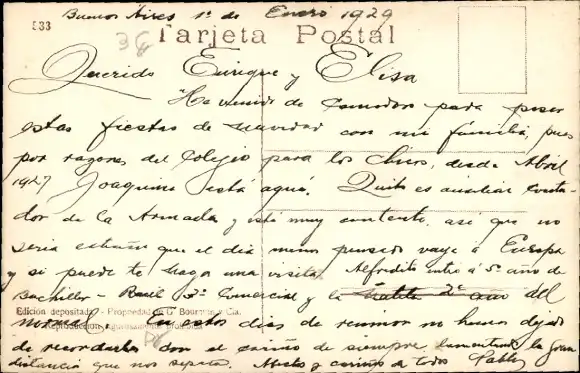 Buenos Aires 1º de Enero 1929
533
36
Tarjeta Postal
Querido Enrique y Elisa
He venido de Comodoro para pasar
estas fiestas de navidad con mi familia, pues
por razones del Colegio para los chicos, desde Abril
1927 Joaquina está aquí. Quito es auxiliar Conta-
dor de la Armada y está muy contento, así que no
sería extraño que el día menos pensado vaya á Europa
y si puede te haga una visita. Alfredito entró á 5º año de
Bachiller - Raul 3º Comercial y la 2º año del
Edición depositada - Propiedad de G. Bourman y Cia.
normal. En estos dias de reunion no hemos dejado
Reproducción rigurosamente prohibida
de recordarlos con el cariño de siempre lamentando la gran
distancia que nos separa. Afectos y cariños de todos Pablo